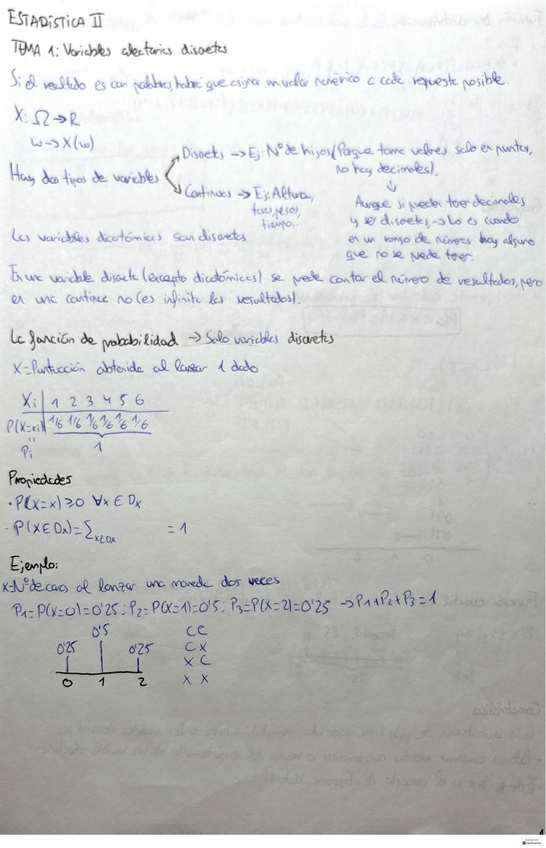 ESTADÍSTICA II
TEMA 1: Variables aleatorias discretas
Si el resultado es con palabras, habrá que asignar un valor numérico a cada respuesta posible.
X: Ω → R
w → X(w)
Hay dos tipos de variables
Discretas → Ej: Nº de hijos (Porque toma valores solo en puntos, no hay decimales).
Continuas → Ej: Altura, peso, tiempo...
Aunque si pueden tener decimales
y ser discretas → Lo es cuando
en un rango de números hay alguno
que no se puede tener.
Las variables dicotómicas son discretas
En una variable discreta (excepto dicotómicas) se puede contar el número de resultados, pero
en una continua no (es infinito los resultados).
La función de probabilidad → Solo variables discretas
X = Puntuación obtenida al lanzar 1 dado
Xi 1 2 3 4 5 6
P(X=xi) 1/6 1/6 1/6 1/6 1/6 1/6
"
Pi
1
Propiedades
· P(X=x) ≥ 0 ∀x ∈ Dx
· P(X∈Dx) = Σx∈Dx = 1
Ejemplo:
X=Nº de caras al lanzar una moneda dos veces
P1=P(X=0)=0'25; P2=P(X=1)=0'5; P3=P(X=2)=0'25 → P1+P2+P3=1
0'25 0'5 0'25
0 1 2
CC
CX
XC
XX